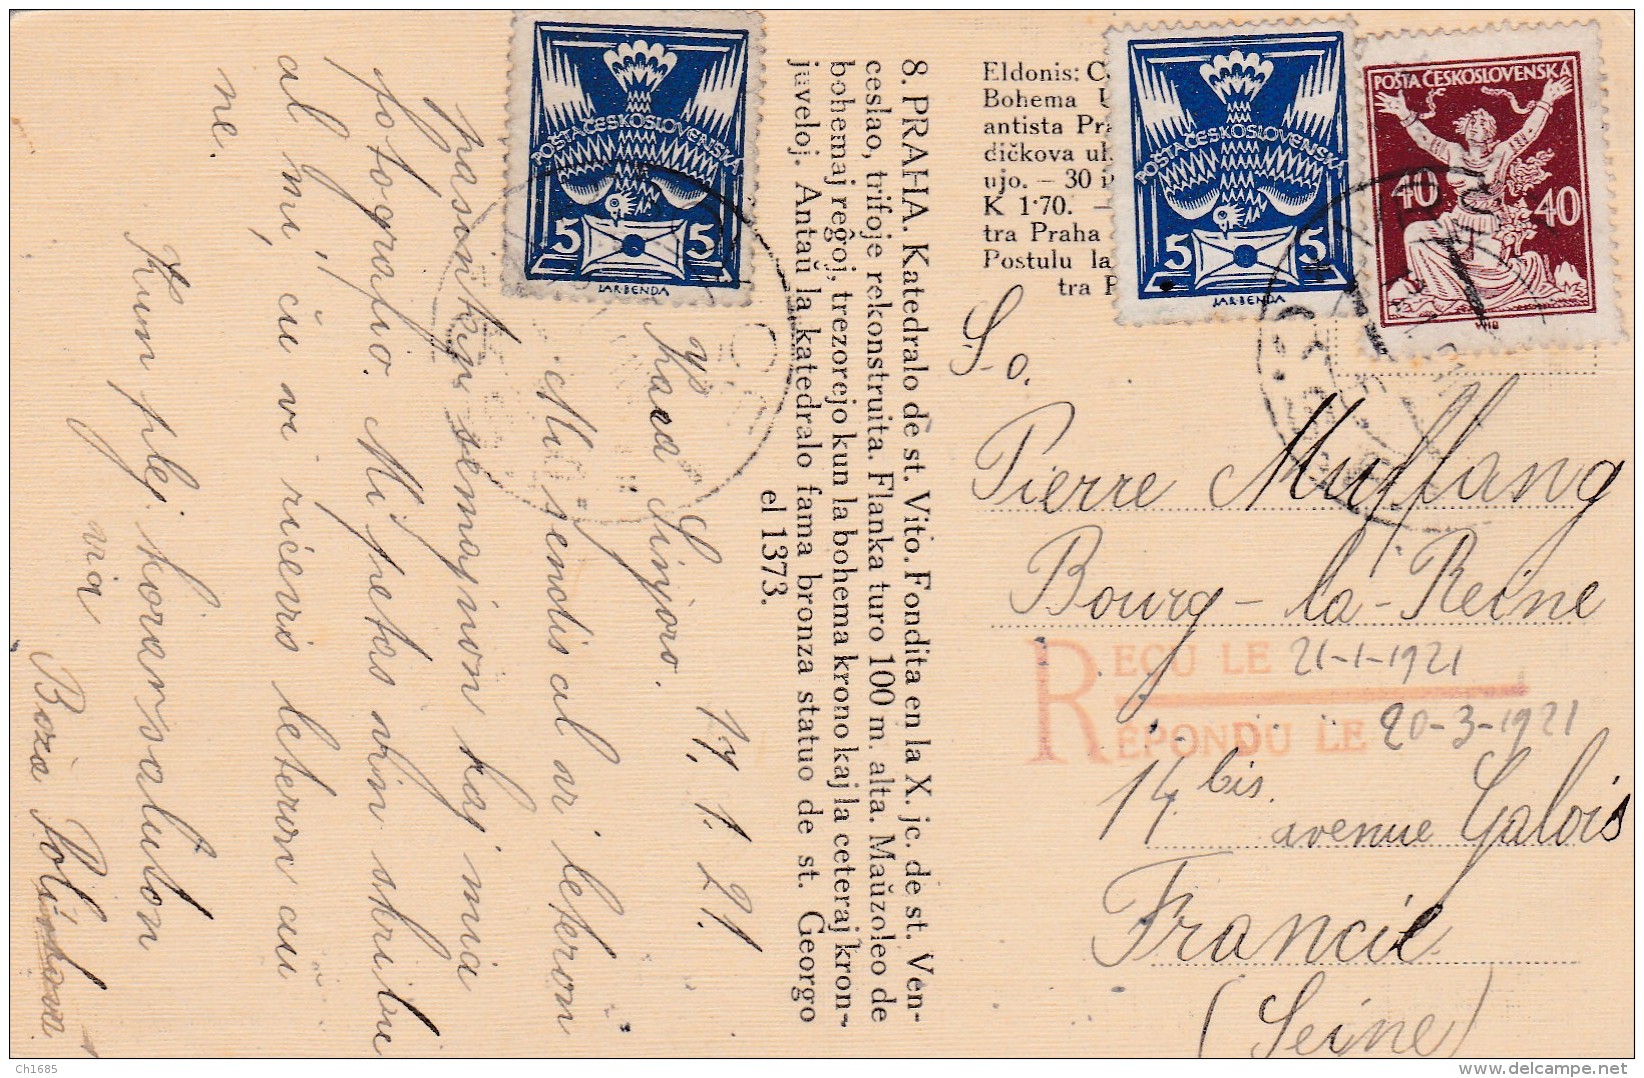 8. PRAHA. Katedralo de st. Vito. Fondita en la X. jc. de st. Ven-
ceslao, trifoje rekonstruita. Flanka turo 100 m. alta. Maŭzoleo de
bohemaj reĝoj, trezorejo kun la bohema krono kaj la ceteraj kron-
juveloj. Antaŭ la katedralo fama bronza statuo de st. Georgo
el 1373.
17. 1. 21.
Kara Sinjoro.
Mi sendis al vi leteron
pasintan semajnon kaj mia
fotografio. Mi petas vin skribu
al mi, ĉu vi ricevis leteron aŭ
ne.
Kun plej koran saluton
via
Boža
Eldonis:
Bohema
antista
dičkova ul.
ujo. – 30
K 1·70. –
tra Praha
Postulu la
tra
POSTA ČESKOSLOVENSKÁ
5 5
JAR·BENDA
POSTA ČESKOSLOVENSKÁ
5 5
JAR·BENDA
POŠTA ČESKOSLOVENSKÁ
40 40
S-o.
Pierre Mufflang
Bourg-la-Reine
REÇU LE 21-1-1921
RÉPONDU LE 20-3-1921
14 bis.
avenue Galois
Francie
(Seine)
Ch1685
delcampe.net